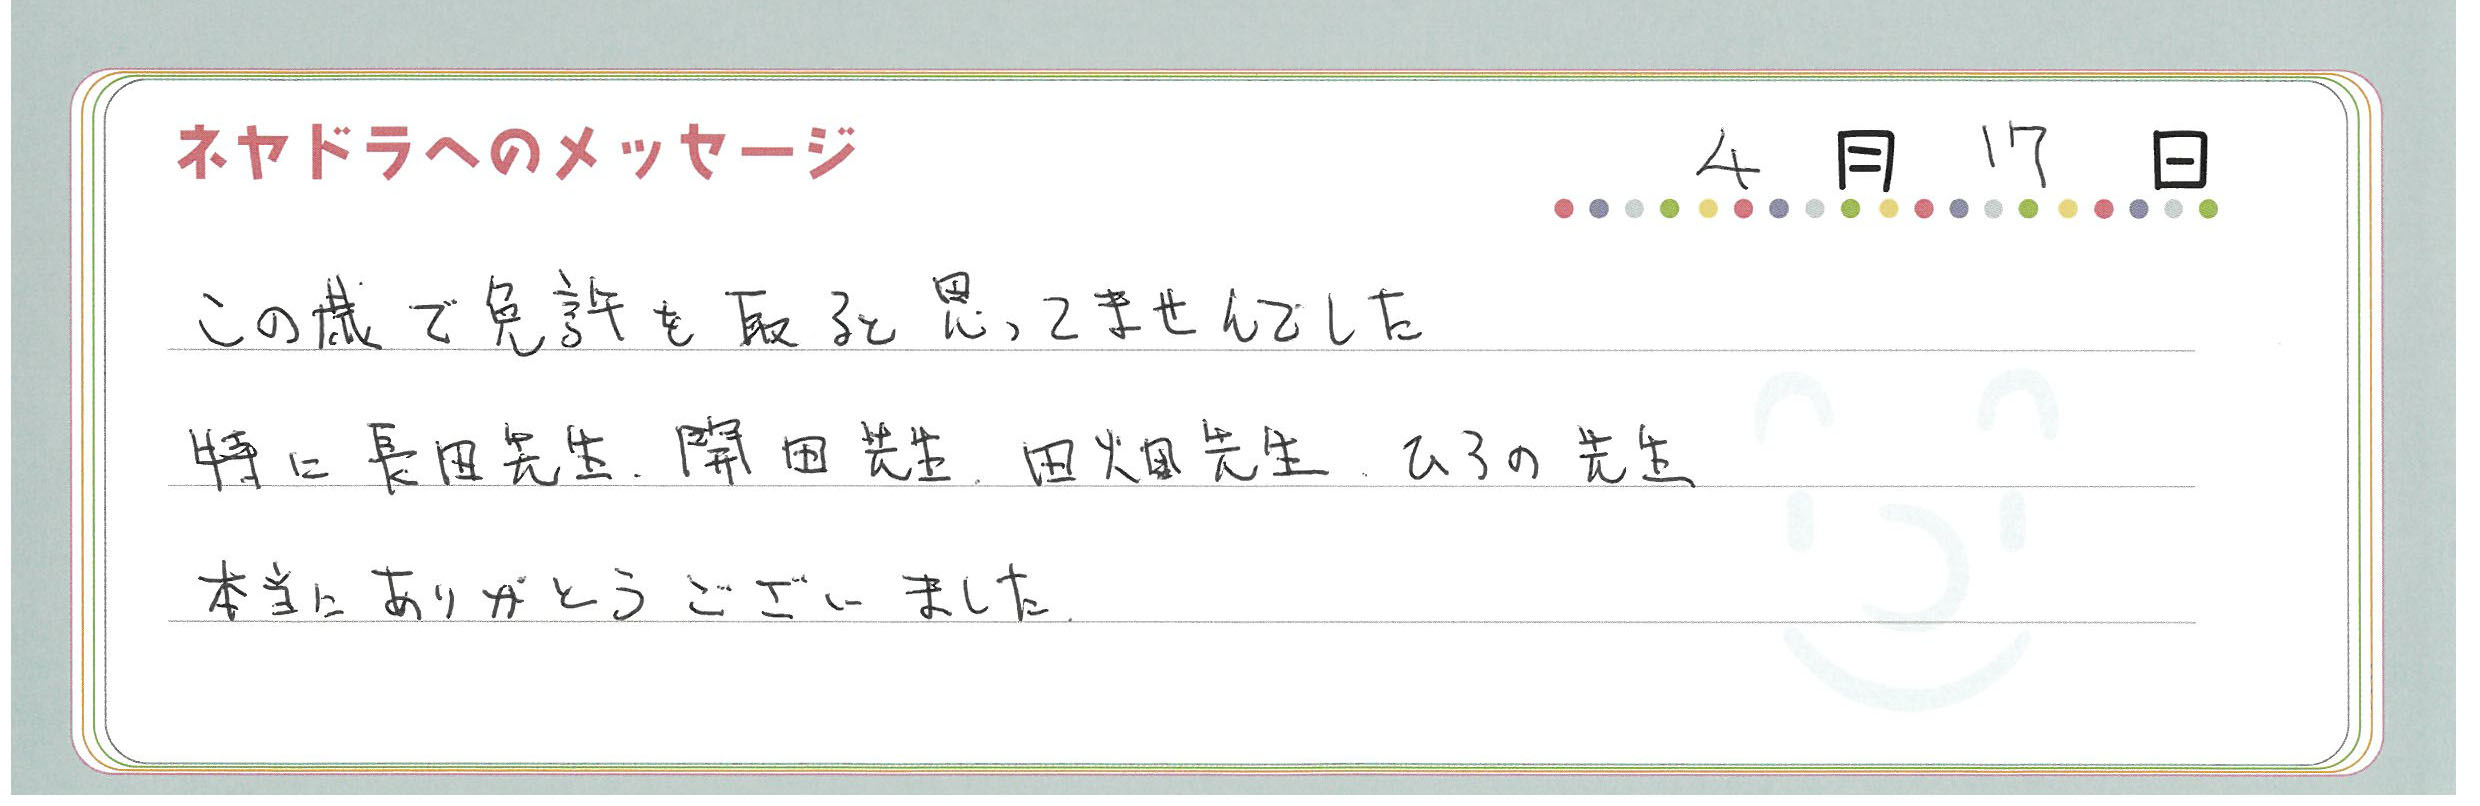 ネヤドラへのメッセージ
4月17日
この歳で免許を取ると思ってませんでした
特に長田先生.開田先生.田畑先生.ひろの先生
本当にありがとうございました.